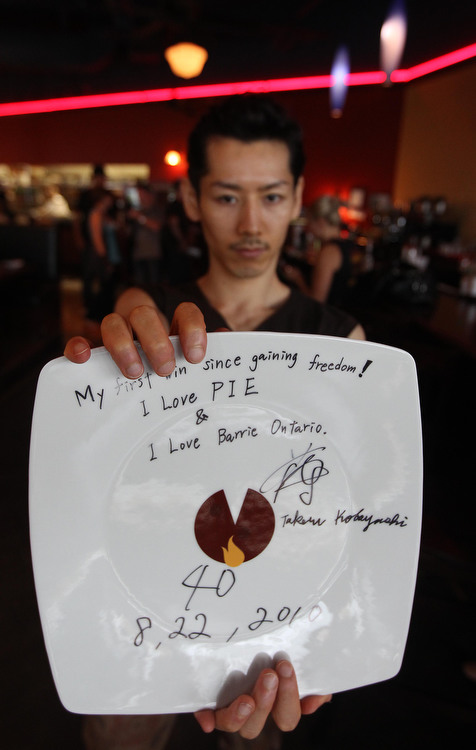 My first win since gaining freedom!
I Love PIE
&
I Love Barrie Ontario.
Takeru Kobayashi
40
8, 22, 2010